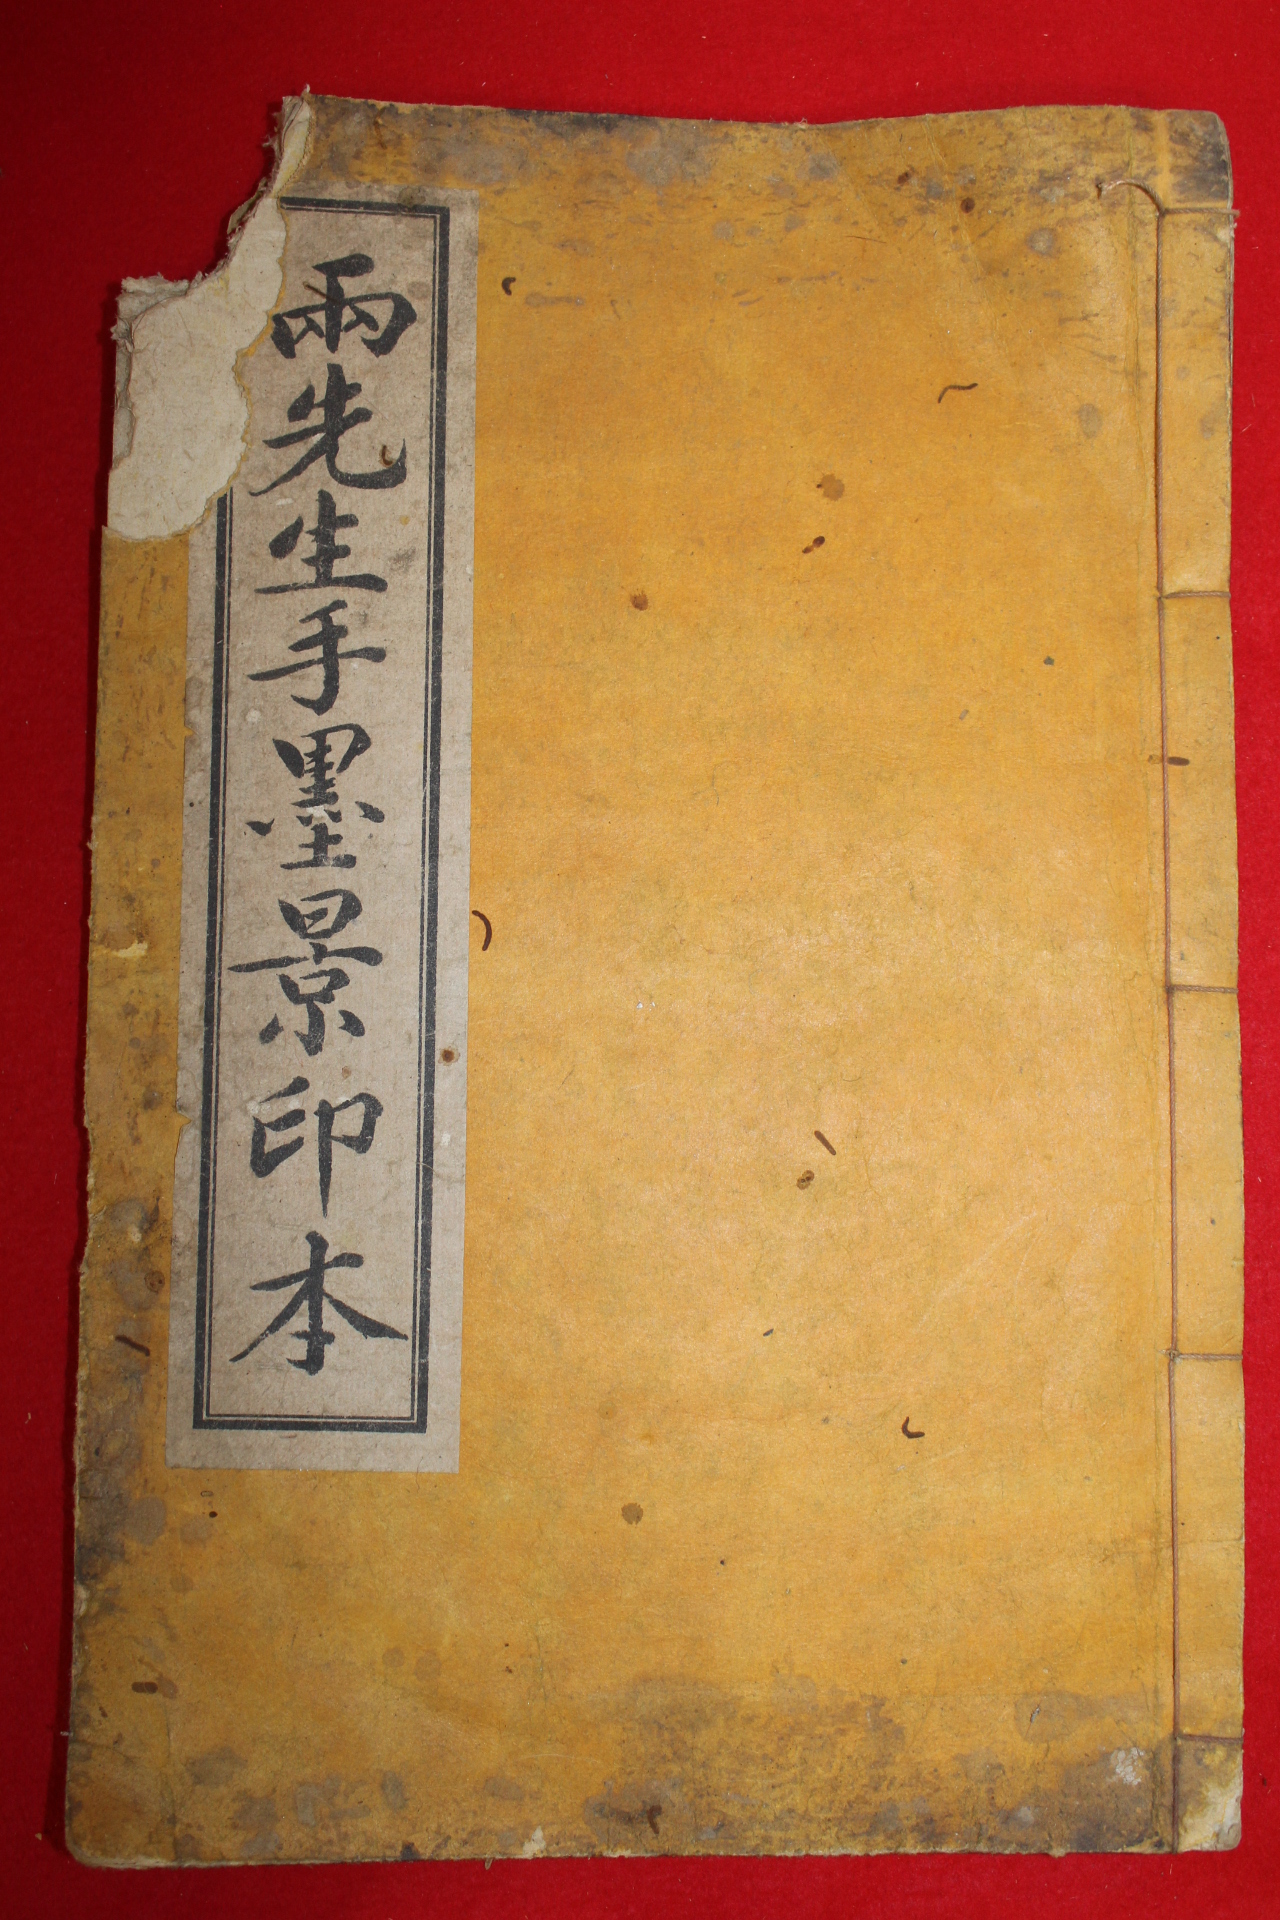 兩先生手墨景印本